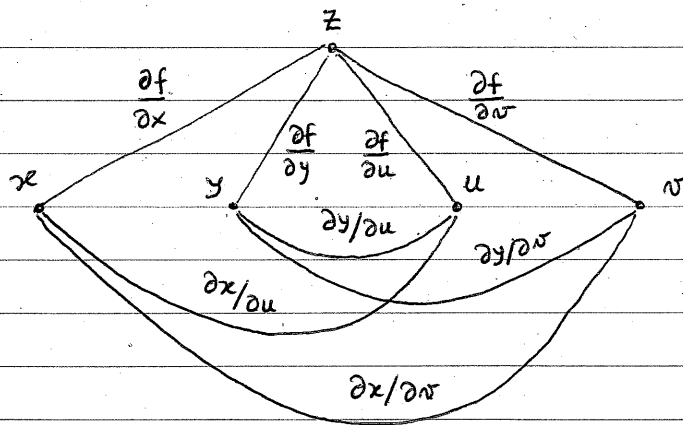 z
∂f/∂x
∂f/∂v
∂f/∂y ∂f/∂u
x y u v
∂y/∂u
∂y/∂v
∂x/∂u
∂x/∂v